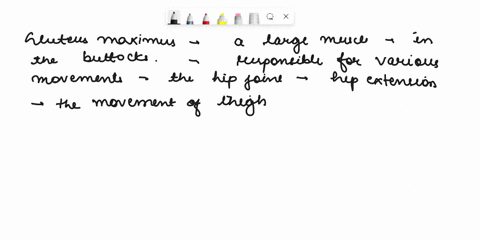 Gluteus maximus → a large muscle → in
the buttocks. → responsible for various
movements → the hip joint → hip extension
→ the movement of thigh